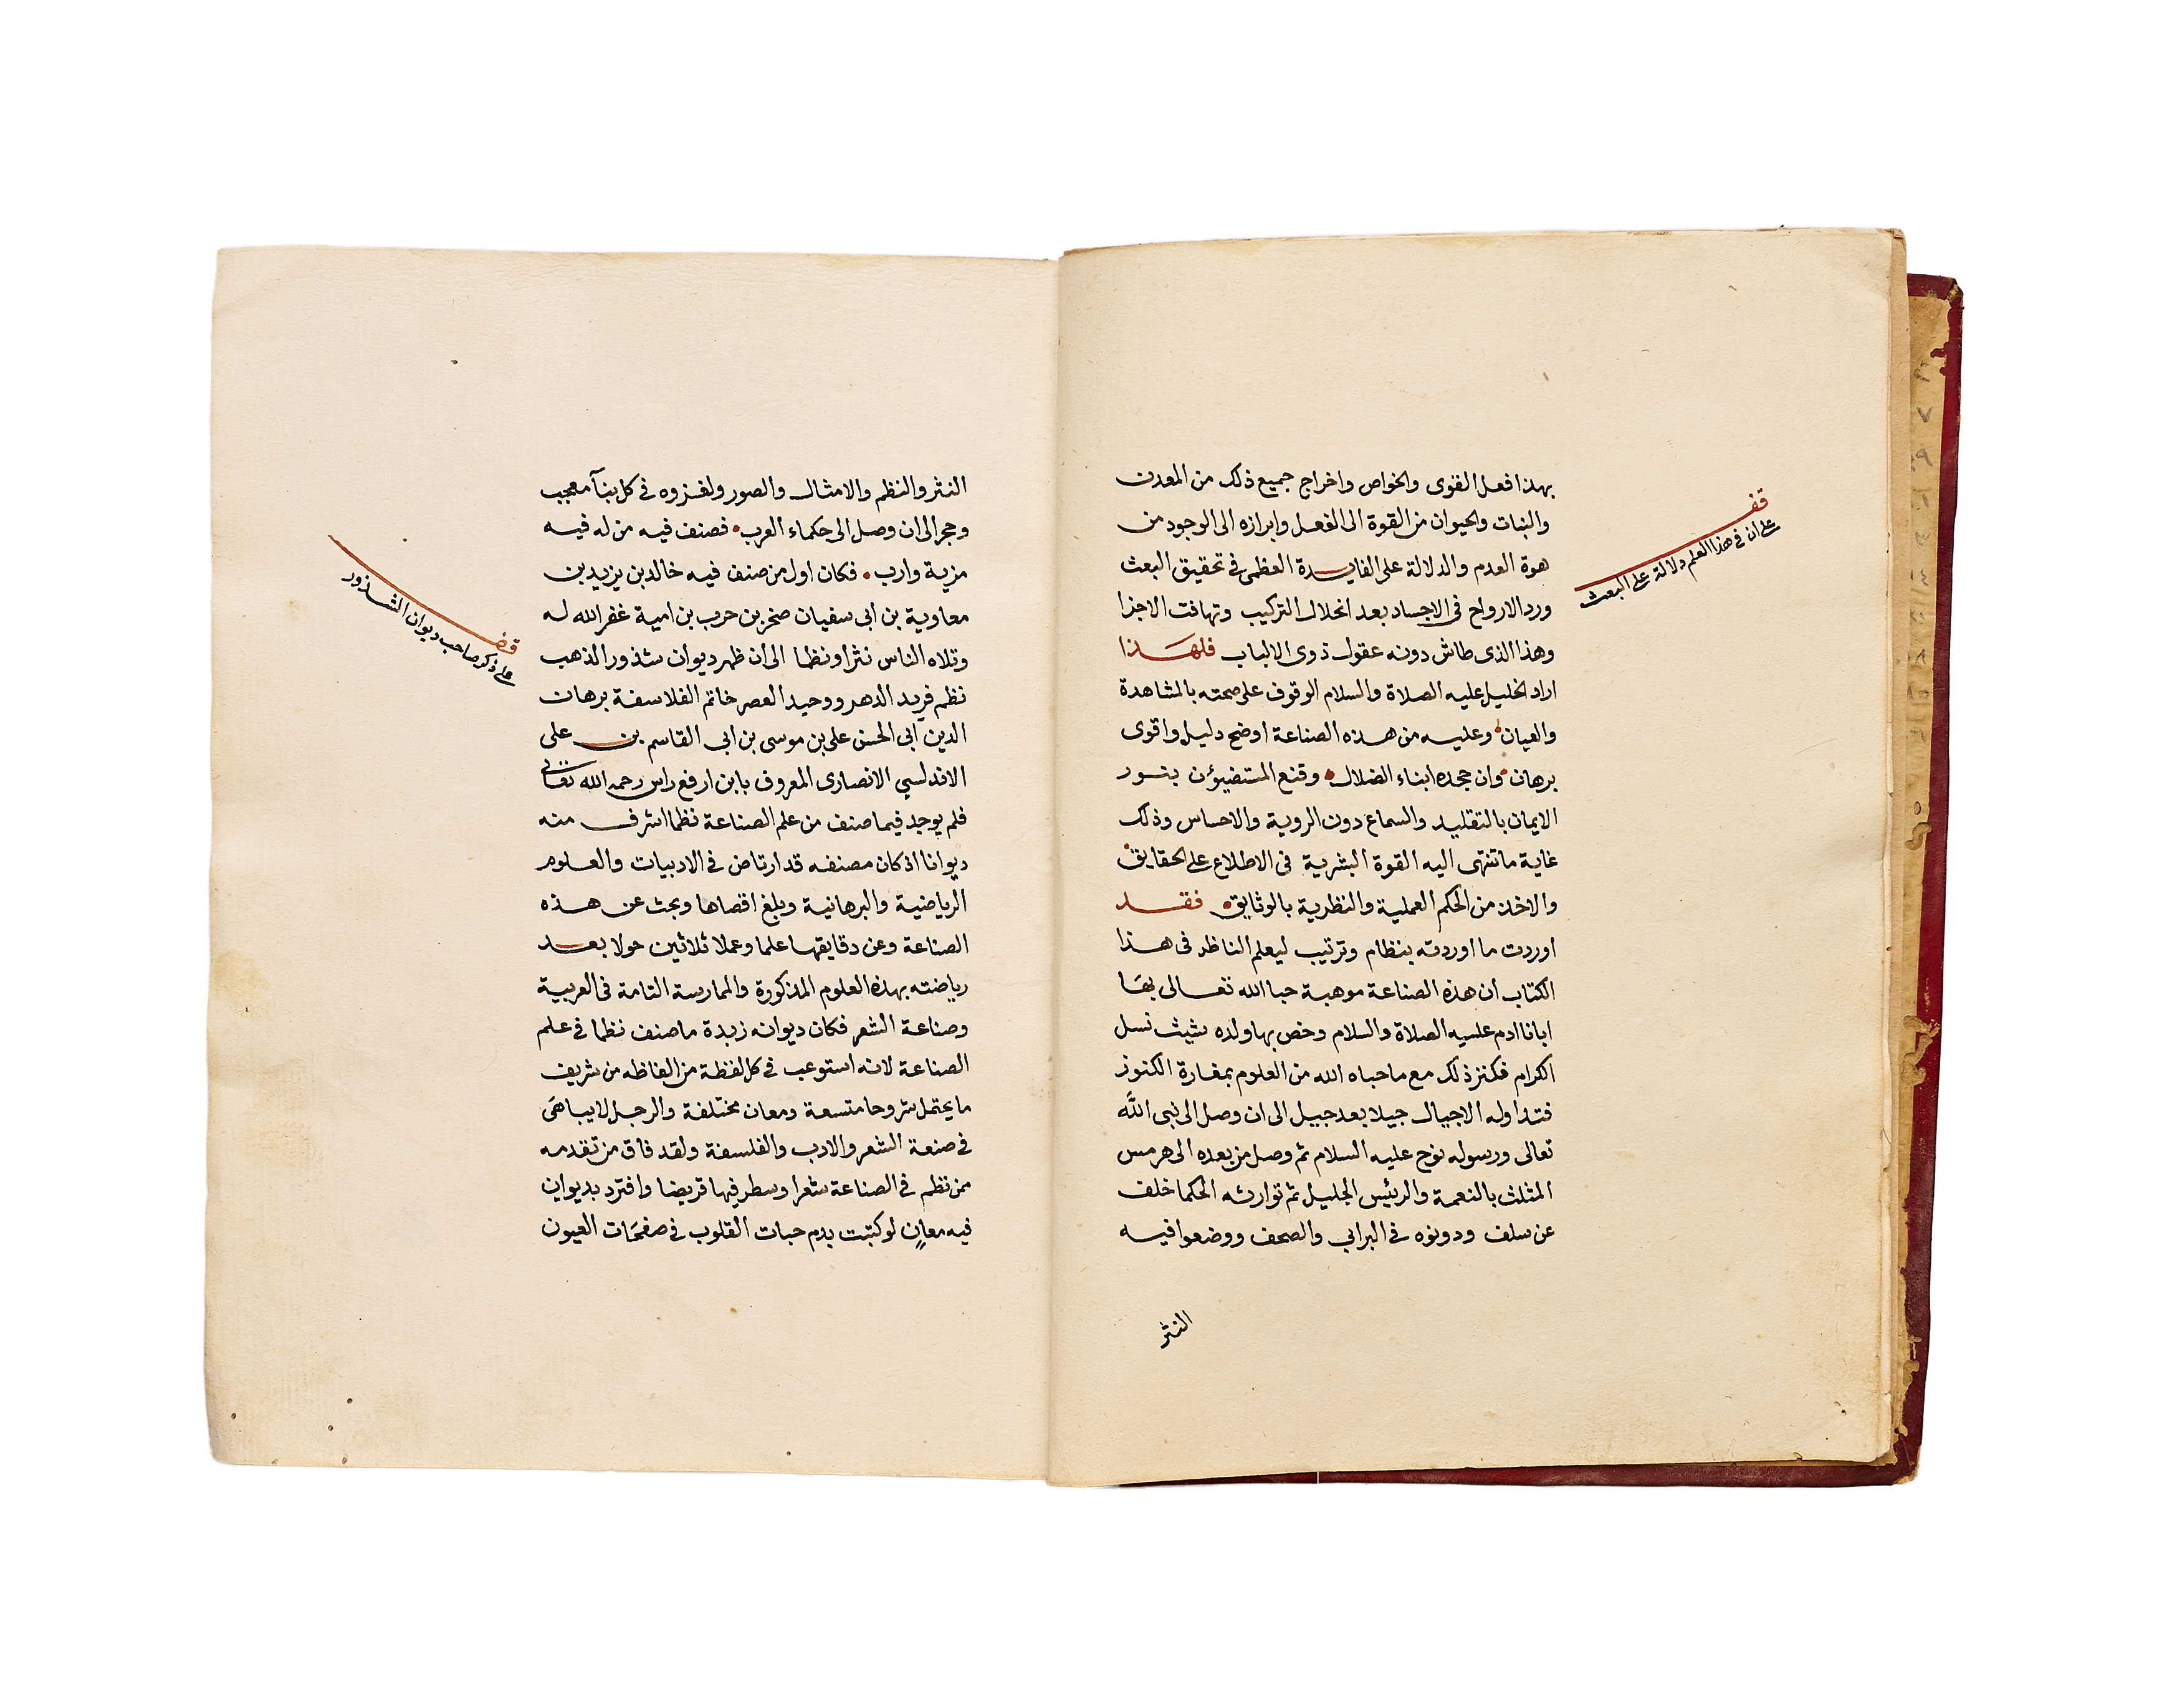 بهذا فعل القوى والخواص واخراج جميع ذلك من المعدن
والنبات والحيوان من القوة الى الفعل وابرازه الى الوجود من
هوة العدم والدلالة على الفايدة العظمى في تحقيق البعث
ورد الارواح فى الاجساد بعد انحلال التركيب وتهافت الاجزا
وهذا الذى طاش دونه عقول ذوى الالباب فلهذا
اراد الخليل عليه الصلاة والسلام الوقوف على صحته بالمشاهدة
والعيان وعليه من هذه الصناعة اوضح دليل واقوى
برهان وان جحده ابناء الضلال وقنع المستضيؤن بنور
الايمان بالتقليد والسماع دون الروية والاحساس وذلك
غاية ما تنتهى اليه القوة البشرية فى الاطلاع على الحقايق
والاخذ من الحكم العملية والنظرية بالوثايق فقد
اوردت ما اوردته بنظام وترتيب ليعلم الناظر فى هذا
الكتاب ان هذه الصناعة موهبة حبا الله تعالى بها
ابانا ادم عليه الصلاة والسلام وخص بها ولده شيث نسل
الكرام فكنز ذلك مع ما حباه الله من العلوم بمغارة الكنوز
فتداوله الاجيال جيلا بعد جيل الى ان وصل الى نبى الله
تعالى ورسوله نوح عليه السلام ثم وصل من بعده الى هرمس
المثلث بالنعمة والرئيس الجليل ثم توارثه الحكما خلف
عن سلف ودونوه في البرابي والصحف ووضعوا فيه
النثر
قف
على ان في هذا العلم دلالة على البعث
النثر والنظم والامثال والصور ولغزوه في كل بنآ معجب
وحجر الى ان وصل الى حكماء العرب فصنف فيه من له فيه
مزية وارب فكان اول من صنف فيه خالد بن يزيد بن
معاوية بن ابى سفيان صخر بن حرب بن امية غفر الله له
وتلاه الناس نثرا ونظما الى ان ظهر ديوان شذور الذهب
نظم فريد الدهر ووحيد العصر خاتم الفلاسفة برهان
الدين ابى الحسن على بن موسى بن ابى القاسم بن على
الاندلسي الانصارى المعروف بابن ارفع راس رحمه الله تعالى
فلم يوجد فيما صنف من علم الصناعة نظما اشرف منه
ديوانا اذ كان مصنفه قد ارتاض في الادبيات والعلوم
الرياضية والبرهانية وبلغ اقصاها وبحث عن هذه
الصناعة وعن دقايقها علما وعملا ثلاثين حولا بعد
رياضته بهذه العلوم المذكورة والممارسة التامة فى العربية
وصناعة الشعر فكان ديوانه زبدة ما صنف نظما في علم
الصناعة لانه استوعب في كل لفظة من الفاظه من شريف
ما يحتمل شروحا متسعة ومعان مختلفة والرجل لا يباهى
في صنعة الشعر والادب والفلسفة ولقد فاق من تقدمه
ممن نظم في الصناعة شعرا وسطر فيها قريضا وافترد بديوان
فيه معانٍ لو كتبت بدم حبات القلوب في صفحات العيون
قف
على ذكر صاحب ديوان الشذور